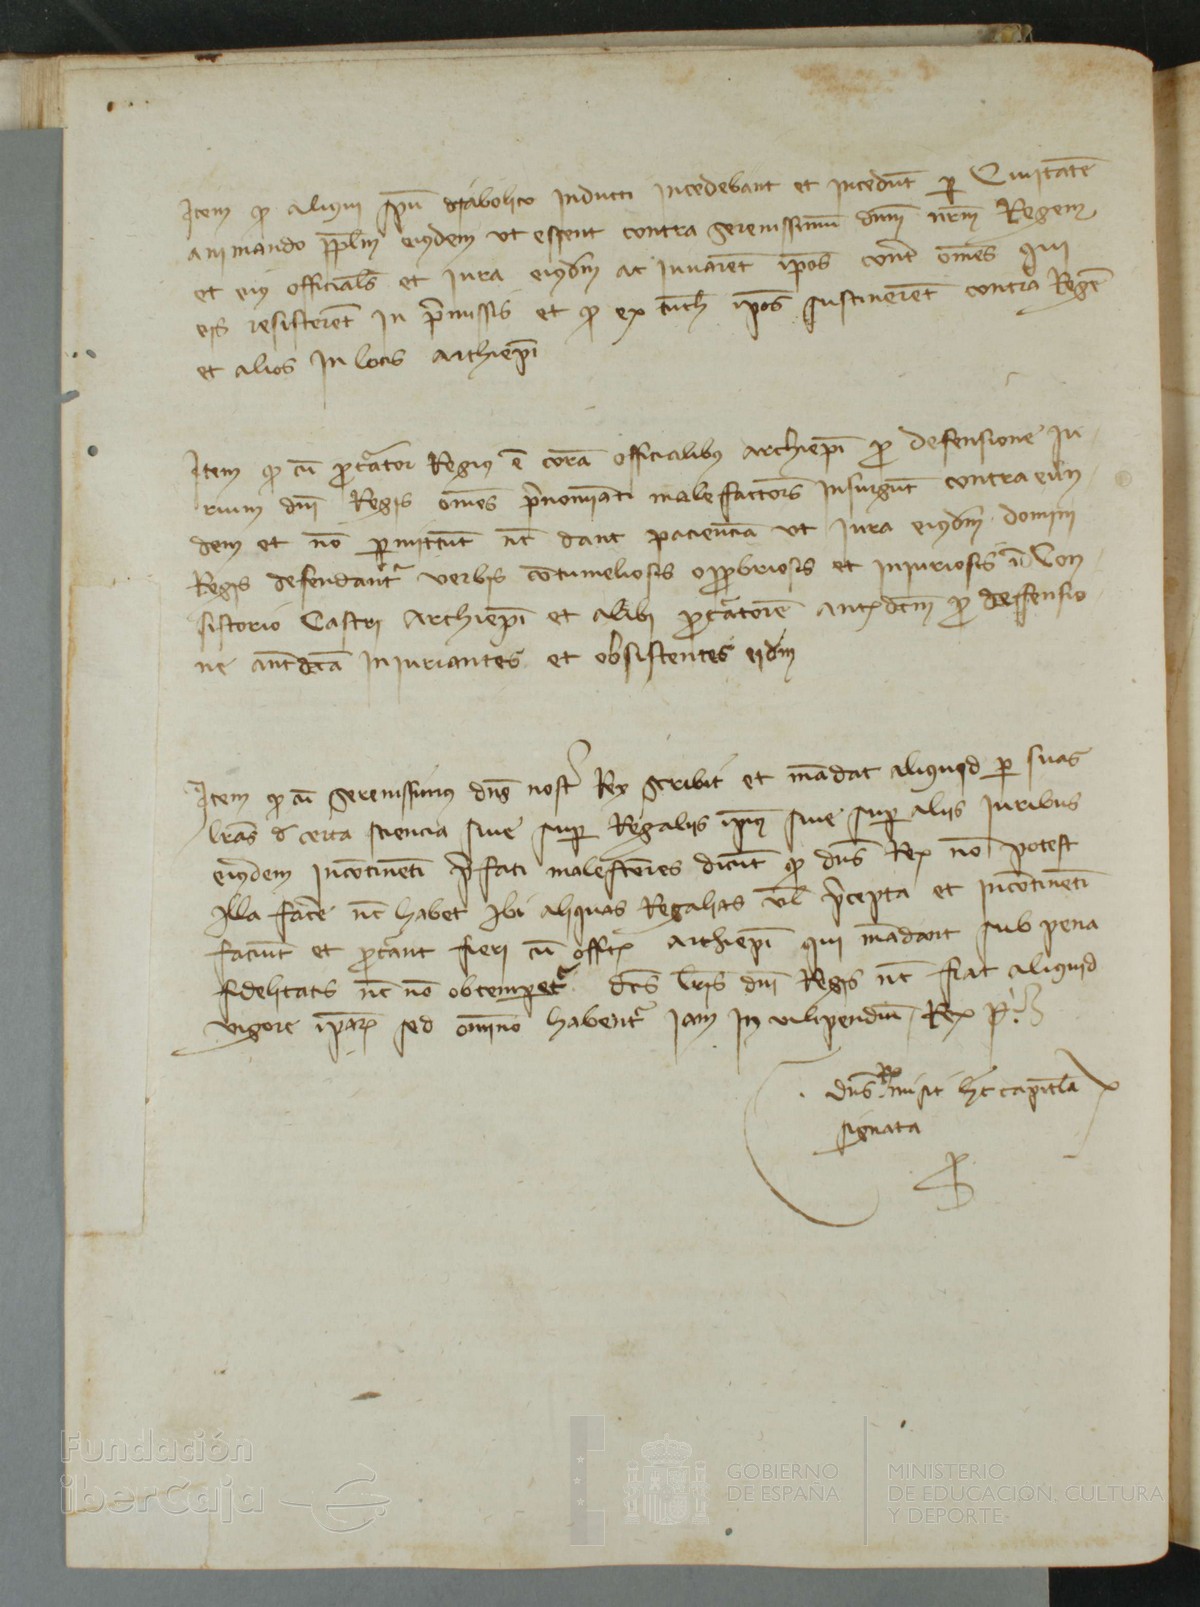 Item q̄ aliqui sp̄u diabolico inducti incedebant et incedūt p̱ Ciuitatē
animando pp̄lm eiusdem ut essent contra serenissimū dn̄m nr̄m Regem
et eius officiales et iura eiusdm̄ ac iuuarēt ip̄os cont̄ om̄es qui
eis resisterēt in p̄missis et q̄ ex ip̄os sustinerēt contra Regē
et alios in locis archiep̄i
Item q̄ cū p̱c̄ator Regius ē corā officialibus archiep̄i p̱ defensione iu
rium dn̄i Regis om̄es p̄nomīati malefactores insurgūt contra eun
dem et nō p̱mittūt nc̄ dant pacienciā ut iura eiusdm̄ domini
Regis defendant᷑ verbis cōtumeliosis opp̱briosis et iniuriosis ī Con
sistorio Castri Archiep̄i et alibi p̱c̄atorē antedc̄m p̱ deffensio
ne ant̄dc̄ā iniuriantes et obsistentes eidm̄
Item q̄ cū serenissimus dn̄s nost̄ Rex scribit et mādat aliquid p̱ suas
lr̄as d̄ certa sciencia siue sup̱ Regaliis ip̄ius siue sup̱ aliis iuribus
eiusdem incōtinēti p̄fati malefc̄ores dicūt q̄ dn̄s Rex nō potest
illa facē nc̄ habet ibi aliquas Regalias vl̄ p̄cepta et incōtinēti
faciūt et p̱c̄ant fieri cū offic̄ archiep̄i qui mādant sub pena
fidelitatis nc̄ nō obtemperet᷑ dc̄is lr̄is dn̄i Regis nc̄ fiat aliquid
vigore ip̄ar̄ sed om̄ino habent᷑ iam in vilipendiū Rex p̱
dn̄s Rex misit hec capitl̄a
signata